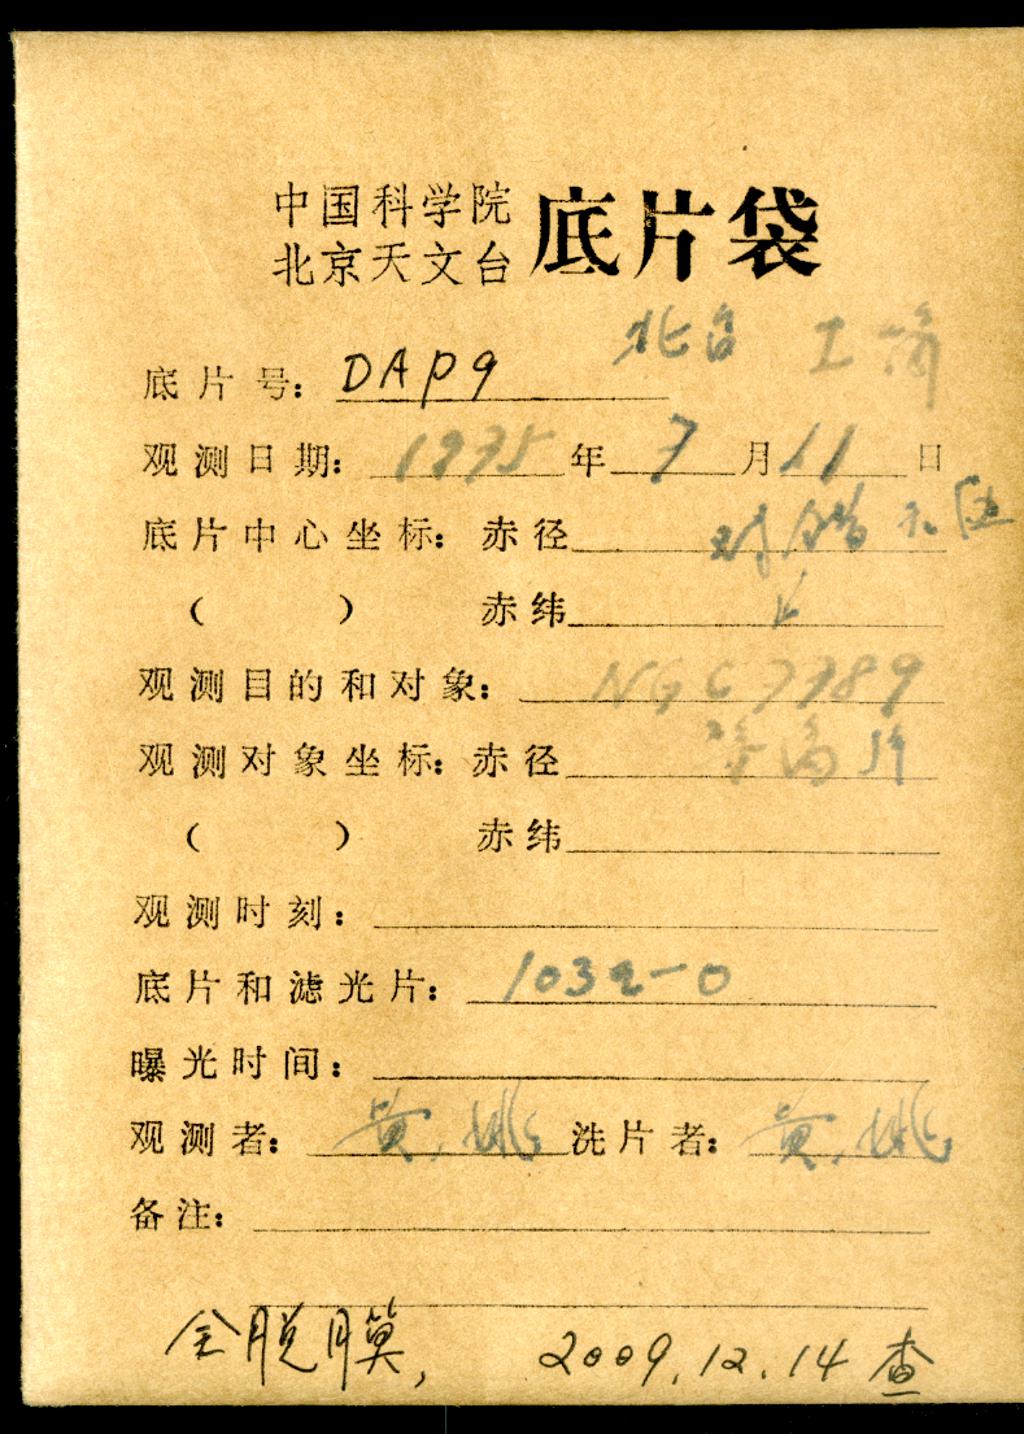 中国科学院
北京天文台
底片袋
北台
底片号: DAP9
观测日期: 1975 年 7 月 11 日
底片中心坐标: 赤径 对错天区
( ) 赤纬
观测目的和对象: NGC7789
观测对象坐标: 赤径
( ) 赤纬
观测时刻:
底片和滤光片: 103a-O
曝光时间:
观测者: 黄, 姚 洗片者: 黄, 姚
备注:
全脱膜, 2009.12.14 查